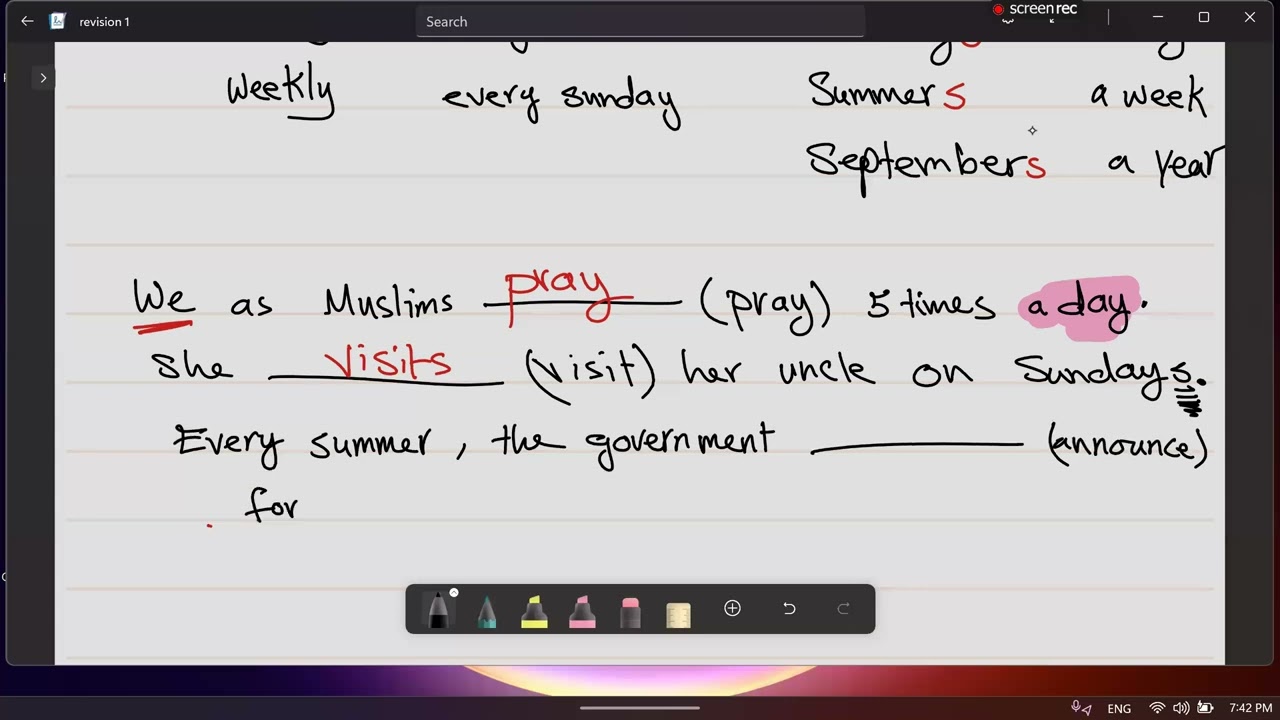 screen rec
revision 1
Search
Weekly every sunday Summers a week
Septembers a year
We as Muslims pray (pray) 5 times a day.
She visits (visit) her uncle on Sundays.
Every summer, the government (announce)
for
ENG 7:42 PM